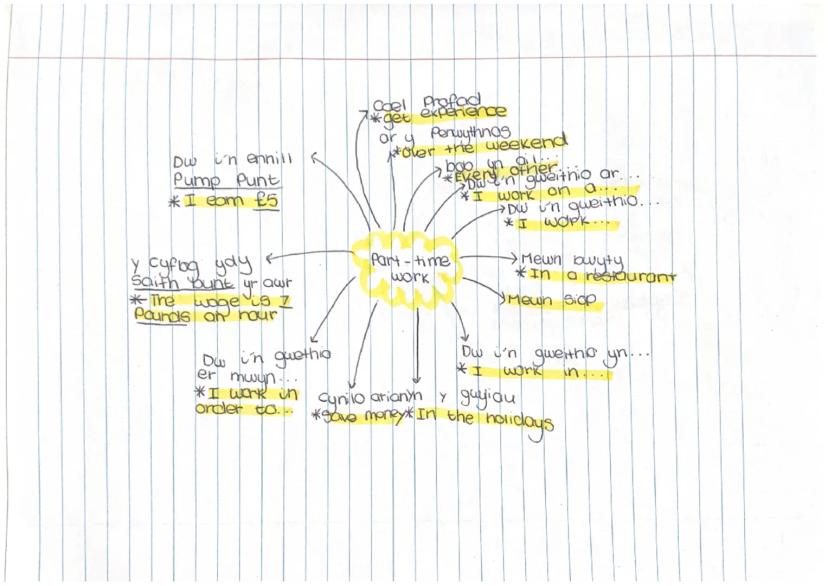 Cael Profad
*get experience
ar y Penwythnos
*over the weekend
bob yn ail...
*Every other...
Dw i'n gweithio ar...
* I work on a...
Dw i'n gweithio...
* I work...
Mewn bwyty
* In a restaurant
Mewn siop
Dw i'n gweithio yn...
* I work in...
yn y gwyliau
* In the holidays
cynilo arian
*save money
Dw i'n gwethio
er mwyn...
* I work in
order to...
y cyflog ydy
saith punt yr awr
* The wage is 7
Pounds an hour
Dw i'n ennill
Pump Punt
* I earn £5
Part-time
work